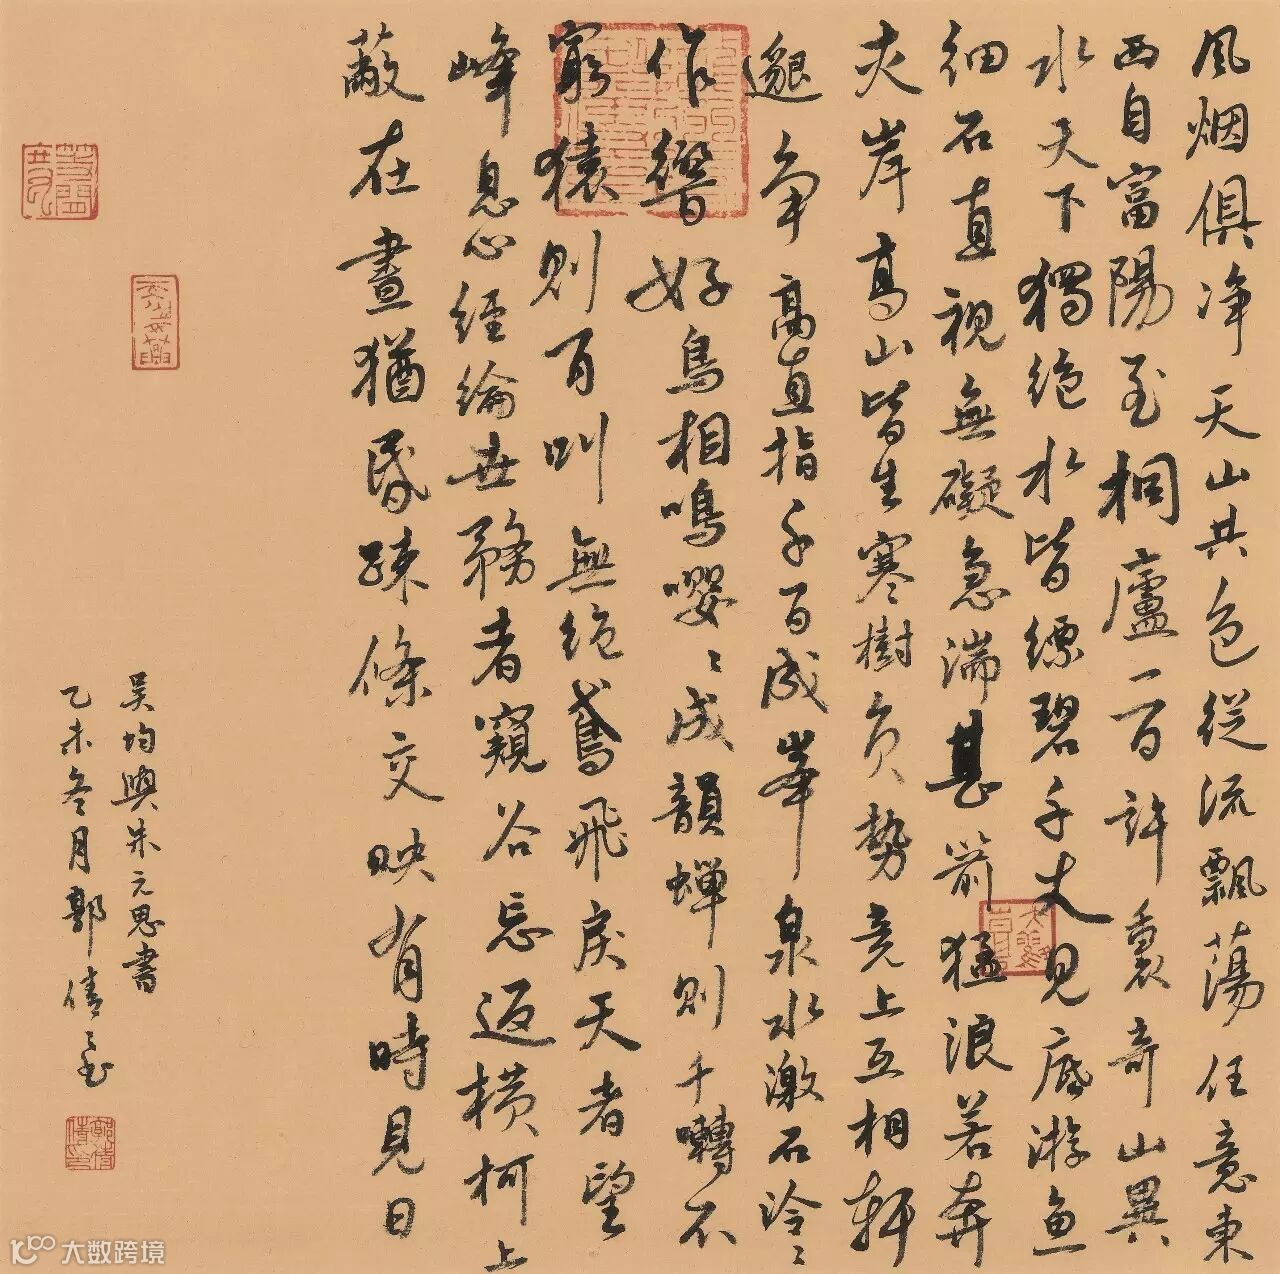 風烟俱净天山共色從流飄蕩任意東
西自富陽至桐廬一百許裏奇山異
水天下獨絶水皆縹碧千丈見底游魚
細石直視無礙急湍甚箭猛浪若奔
夹岸高山皆生寒樹負勢竞上互相軒
邈争高直指千百成峯泉水激石泠〻
作響好鳥相鳴嚶〻成韻蟬則千囀不
窮猿則百叫無絶鳶飛戾天者望
峰息心經綸世務者窺谷忘返横柯上
蔽在晝猶昏疎條交映有時見日
吴均與朱元思書
乙未冬月郭
大数跨境